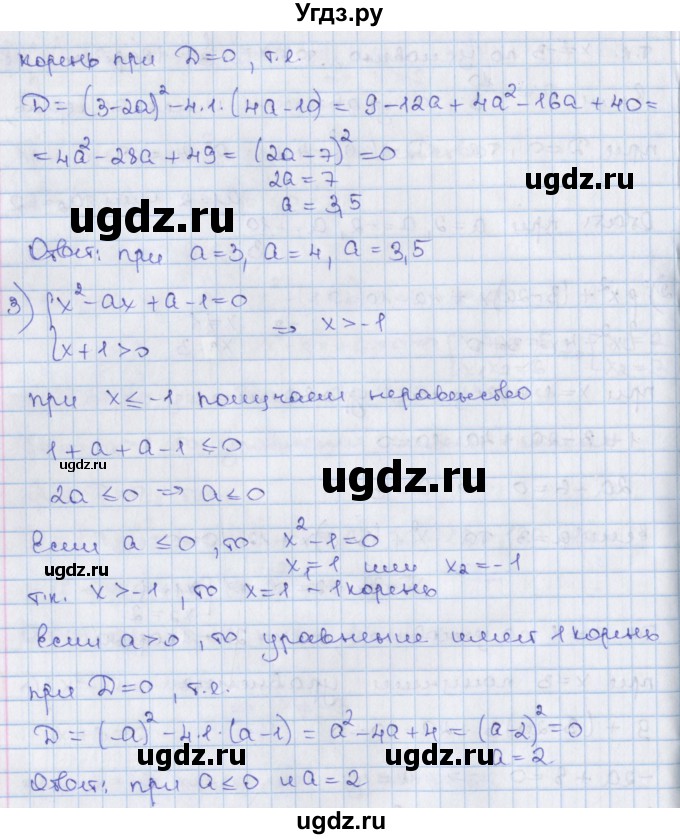 Угдз.ру
корень при D=0, т.е.
D = (3-2a)² - 4·1·(4a-10) = 9-12a+4a²-16a+40=
= 4a²-28a+49 = (2a-7)² = 0
2a = 7
a = 3,5
ugdz.ru
ugdz.ru
Ответ: при a=3, a=4, a=3,5
3) { x²-ax+a-1=0
{ x+1>0 → x>-1
при x≤-1 получаем неравенство
1+a+a-1≤0
ugdz.ru
ugdz.ru
2a≤0 ⇒ a≤0
если a≤0, то x²-1=0
x₁=1 или x₂=-1
ugdz.ru
т.к. x>-1, то x=1 - 1 корень
если a>0, то уравнение имеет 1 корень
ugdz.ru
при D=0, т.е.
D = (-a)² - 4·1·(a-1) = a²-4a+4 = (a-2)² = 0
a=2
ugdz.ru
ugdz.ru
Ответ: при a≤0 и a=2
ugdz.ru